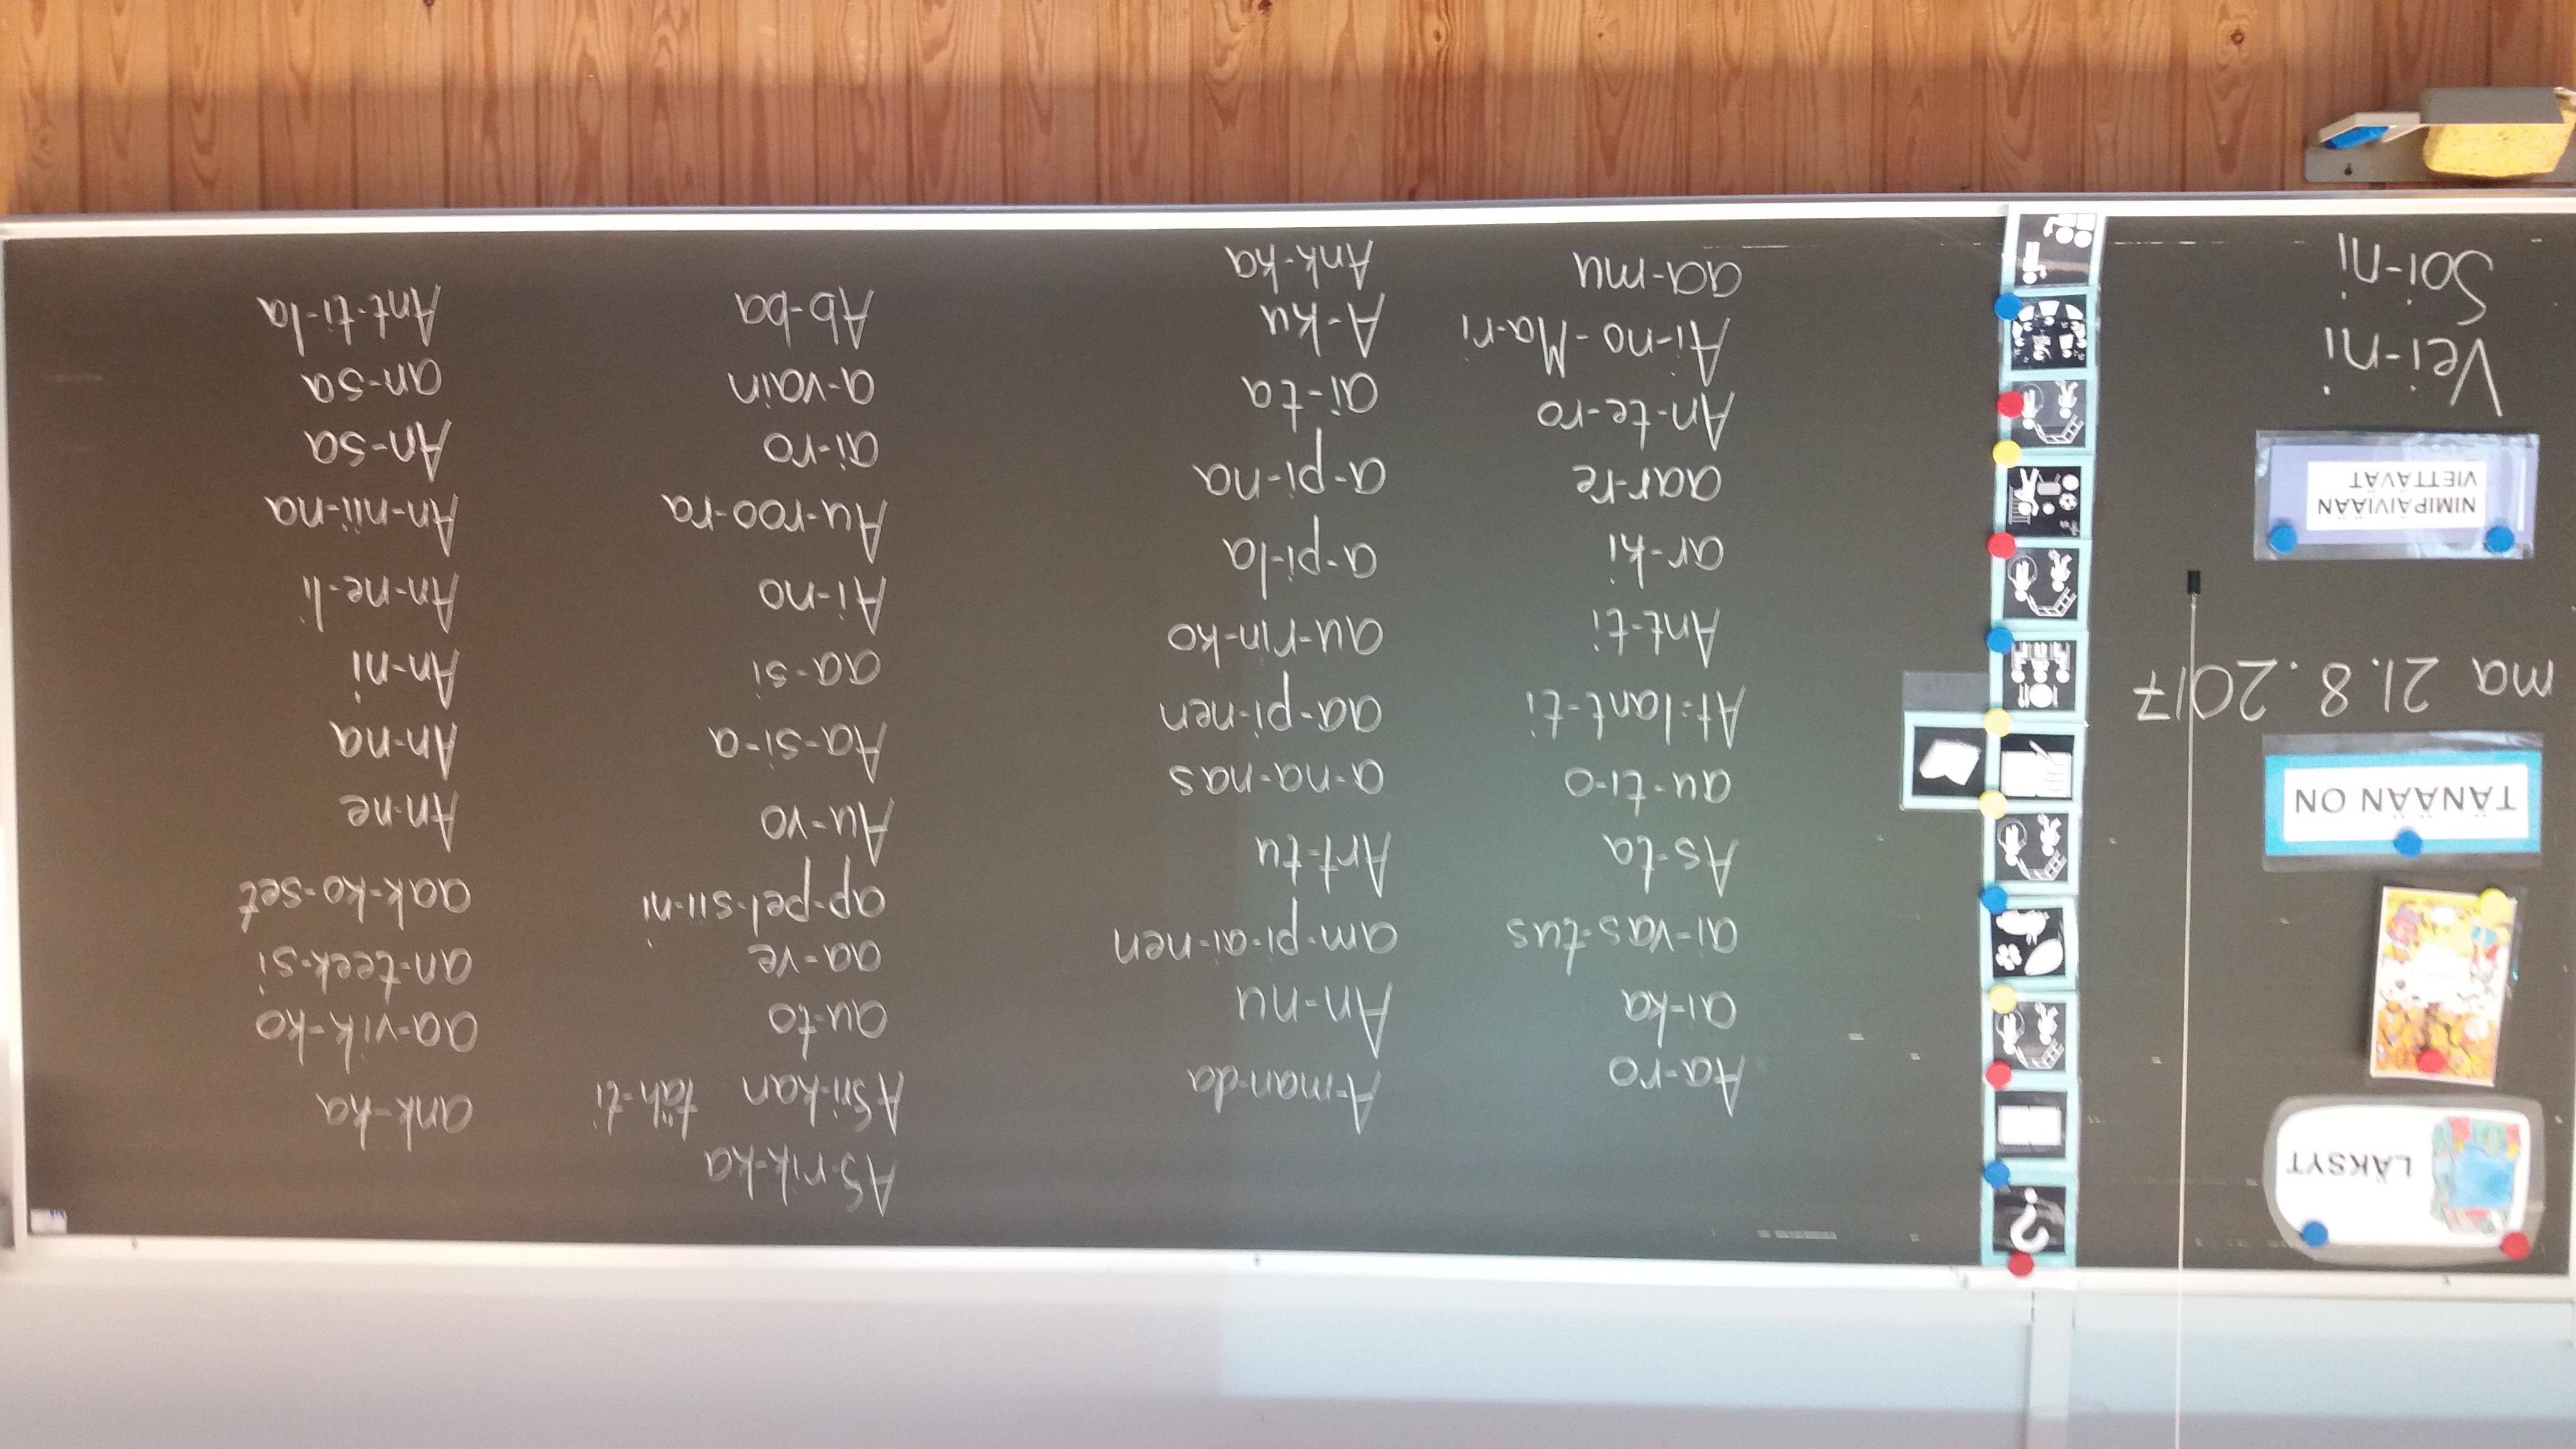 LÄKSYT
TÄNÄÄN ON
ma 21.8.2017
NIMIPÄIVIÄÄN
VIETTÄVÄT
Vei-ni
Soi-ni
?
Aa-ro
ai-ka
ai-vas-tus
As-ta
au-ti-o
At-lant-ti
Ant-ti
ar-ki
aar-re
An-te-ro
Ai-no-Ma-ri
aa-mu
A-man-da
An-nu
am-pi-ai-nen
Art-tu
a-na-nas
aa-pi-nen
au-rin-ko
a-pi-la
a-pi-na
ai-ta
A-ku
Ank-ka
Af-rik-ka
Af-ri-kan täh-ti
au-to
aa-ve
ap-pel-sii-ni
Au-vo
Aa-si-a
aa-si
Ai-no
Au-roo-ra
ai-ro
a-vain
Ab-ba
ank-ka
aa-vik-ko
an-teek-si
aak-ko-set
An-ne
An-na
An-ni
An-ne-li
An-nii-na
An-sa
an-sa
Ant-ti-la